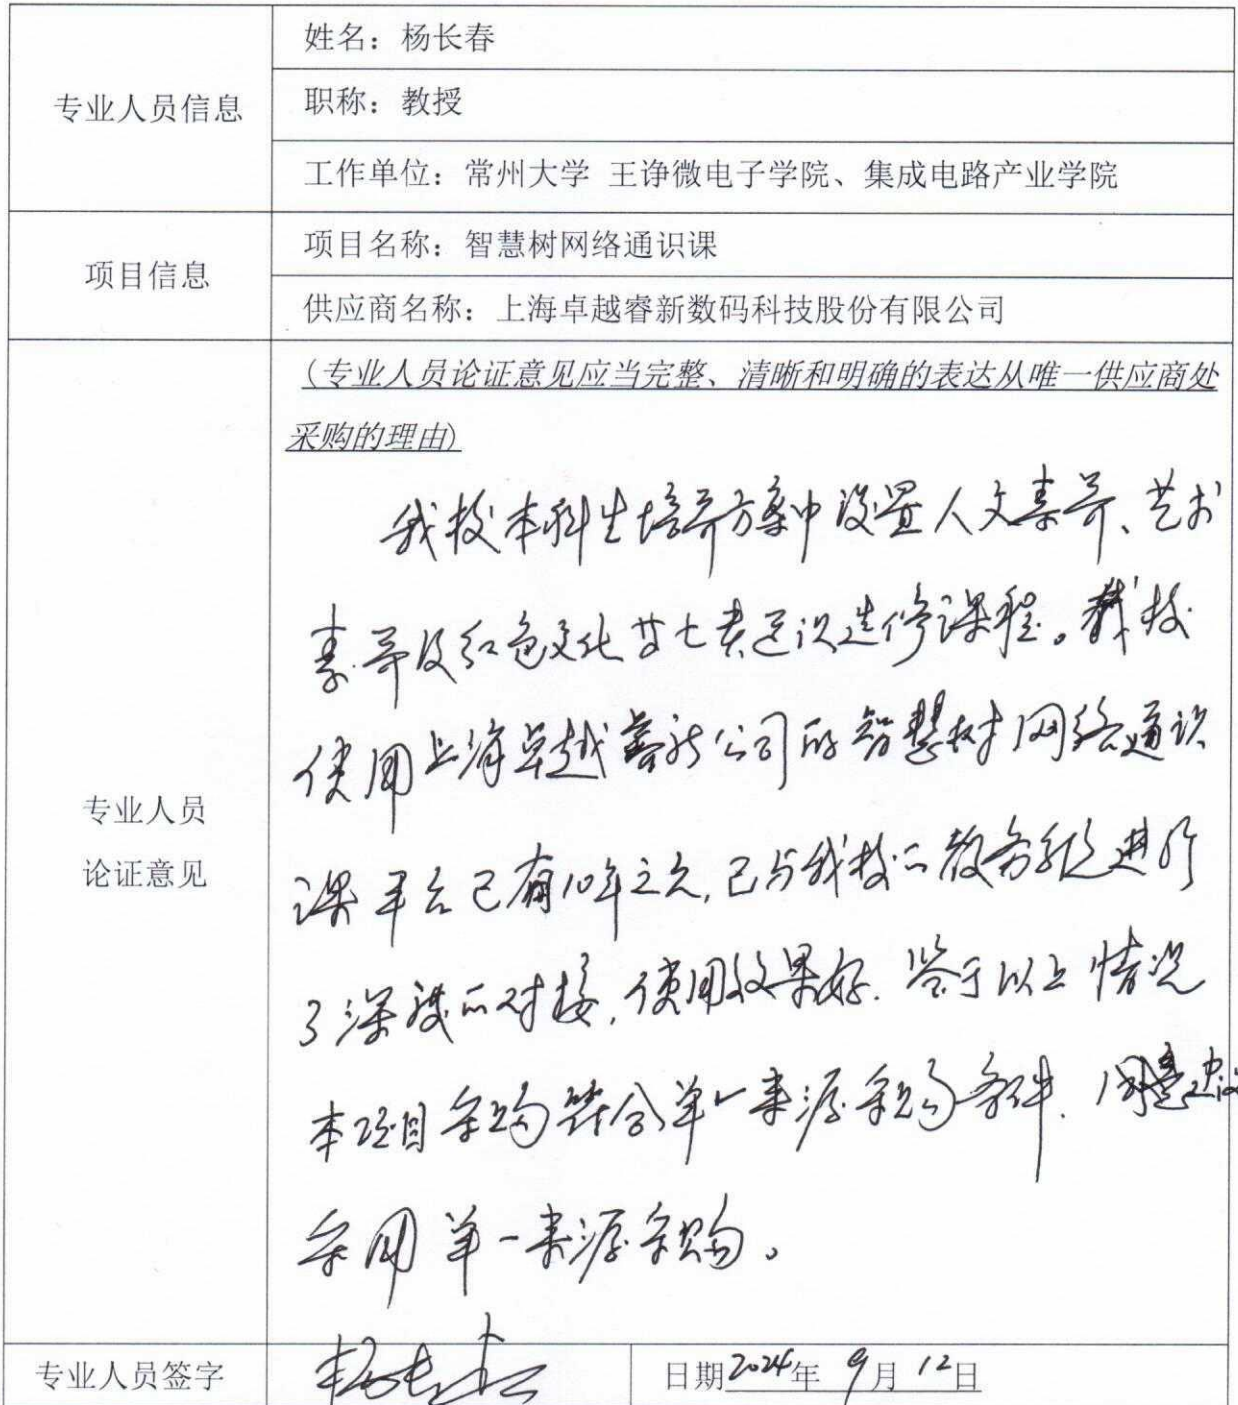 专业人员信息
姓名：杨长春
职称：教授
工作单位：常州大学 王诤微电子学院、集成电路产业学院
项目信息
项目名称：智慧树网络通识课
供应商名称：上海卓越睿新数码科技股份有限公司
专业人员
论证意见
（专业人员论证意见应当完整、清晰和明确的表达从唯一供应商处
采购的理由）
我校本科生培养方案中设置人文素养、艺术
素养及红色文化等七类通识选修课程。我校
使用上海卓越睿新公司的智慧树网络通识
课平台已有10年之久，已与我校的教务系统进行
了深度的对接，使用效果好．鉴于以上情况
本项目采购符合单一来源采购条件．同意建议
采用单一来源采购。
专业人员签字
杨长春
日期2024年 9月 12日